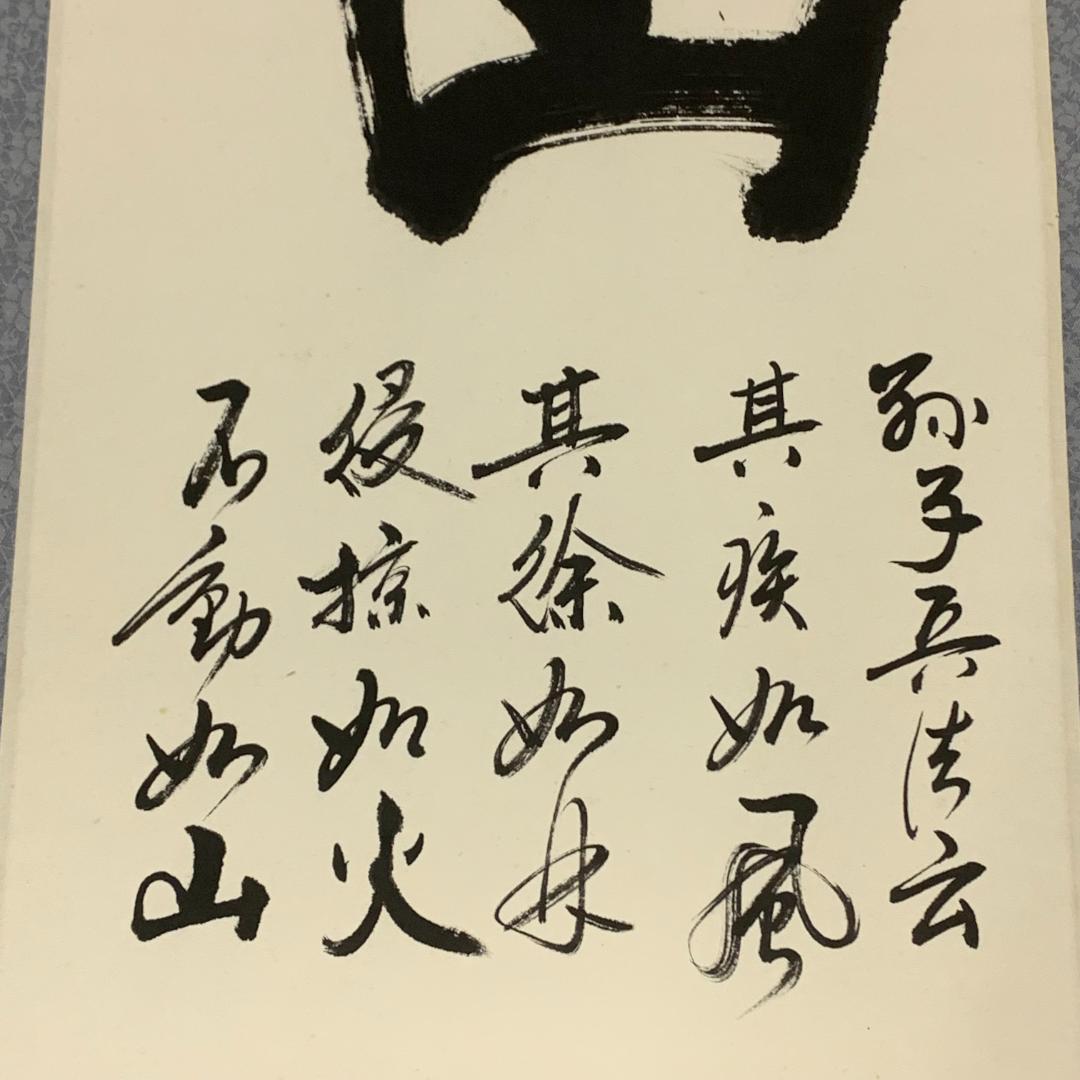 山
孙子兵法云
其疾如風
其徐如林
侵掠如火
不動如山